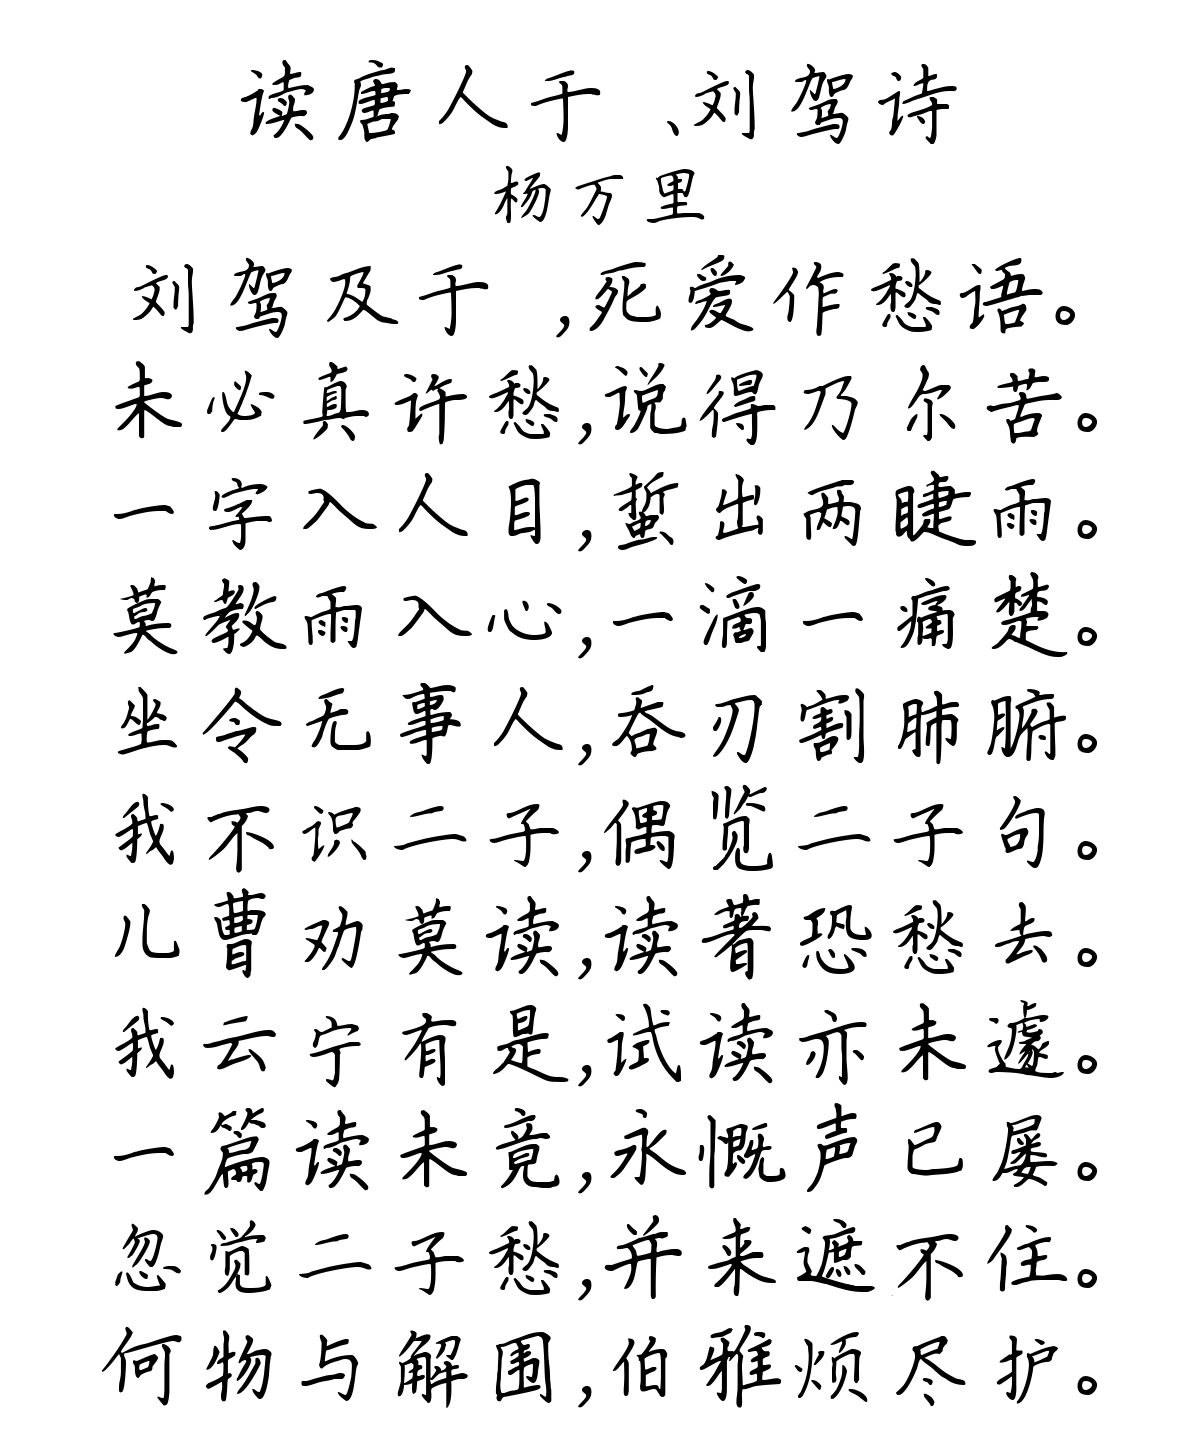 读唐人于 、刘驾诗
杨万里
刘驾及于 ,死爱作愁语。
未必真许愁,说得乃尔苦。
一字入人目,蜇出两睫雨。
莫教雨入心,一滴一痛楚。
坐令无事人,吞刃割肺腑。
我不识二子,偶览二子句。
儿曹劝莫读,读著恐愁去。
我云宁有是,试读亦未遽。
一篇读未竟,永慨声已屡。
忽觉二子愁,并来遮不住。
何物与解围,伯雅烦尽护。